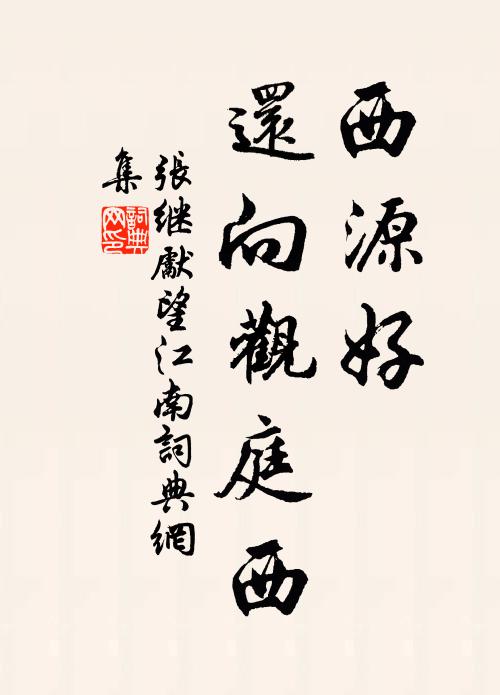 西源好
還向觀庭西
張继獻望江南詞典網
集
詞典
网印